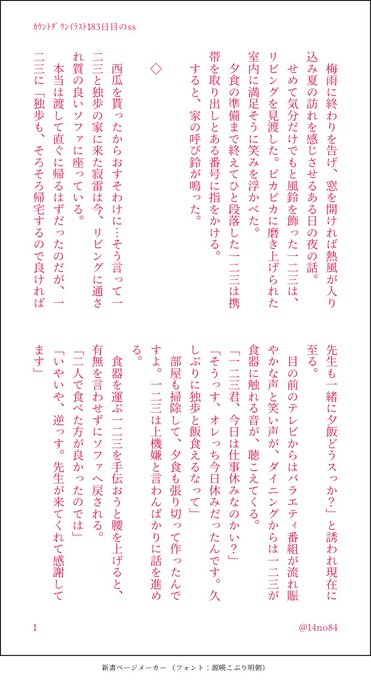 ｶｳﾝﾄﾀﾞｳﾝｲﾗｽﾄ183日目のss
梅雨に終わりを告げ、窓を開ければ熱風が入り
込み夏の訪れを感じさせるある日の夜の話。
せめて気分だけでもと風鈴を飾った一二三は、
リビングを見渡した。ピカピカに磨き上げられた
室内に満足そうに笑みを浮かべた。
夕食の準備まで終えてひと段落した一二三は携
帯を取り出しとある番号に指をかける。
すると、家の呼び鈴が鳴った。
◇
西瓜を貰ったからおすそわけに…そう言って一
二三と独歩の家に来た寂雷は今、リビングに通さ
れ質の良いソファに座っている。
本当は渡して直ぐに帰るはずだったのだが、一
二三に「独歩も、そろそろ帰宅するので良ければ
先生も一緒に夕飯どうスっか？」と誘われ現在に
至る。
目の前のテレビからはバラエティ番組が流れ賑
やかな声と笑い声が、ダイニングからは一二三が
食器に触れる音が、聴こえてくる。
「一二三君、今日は仕事休みなのかい？」
「そうっす、オレっち今日休みだったんです。久
しぶりに独歩と飯食えるなって」
部屋も掃除して、夕食も張り切って作ったんで
すよ。一二三は上機嫌と言わんばかりに話を進め
る。
食器を運ぶ一二三を手伝おうと腰を上げると、
有無を言わせずにソファへ戻される。
「二人で食べた方が良かったのでは」
「いやいや、逆っす。先生が来てくれて感謝して
ます」
1
@14no84
新書ページメーカー（フォント：源暎こぶり明朝）